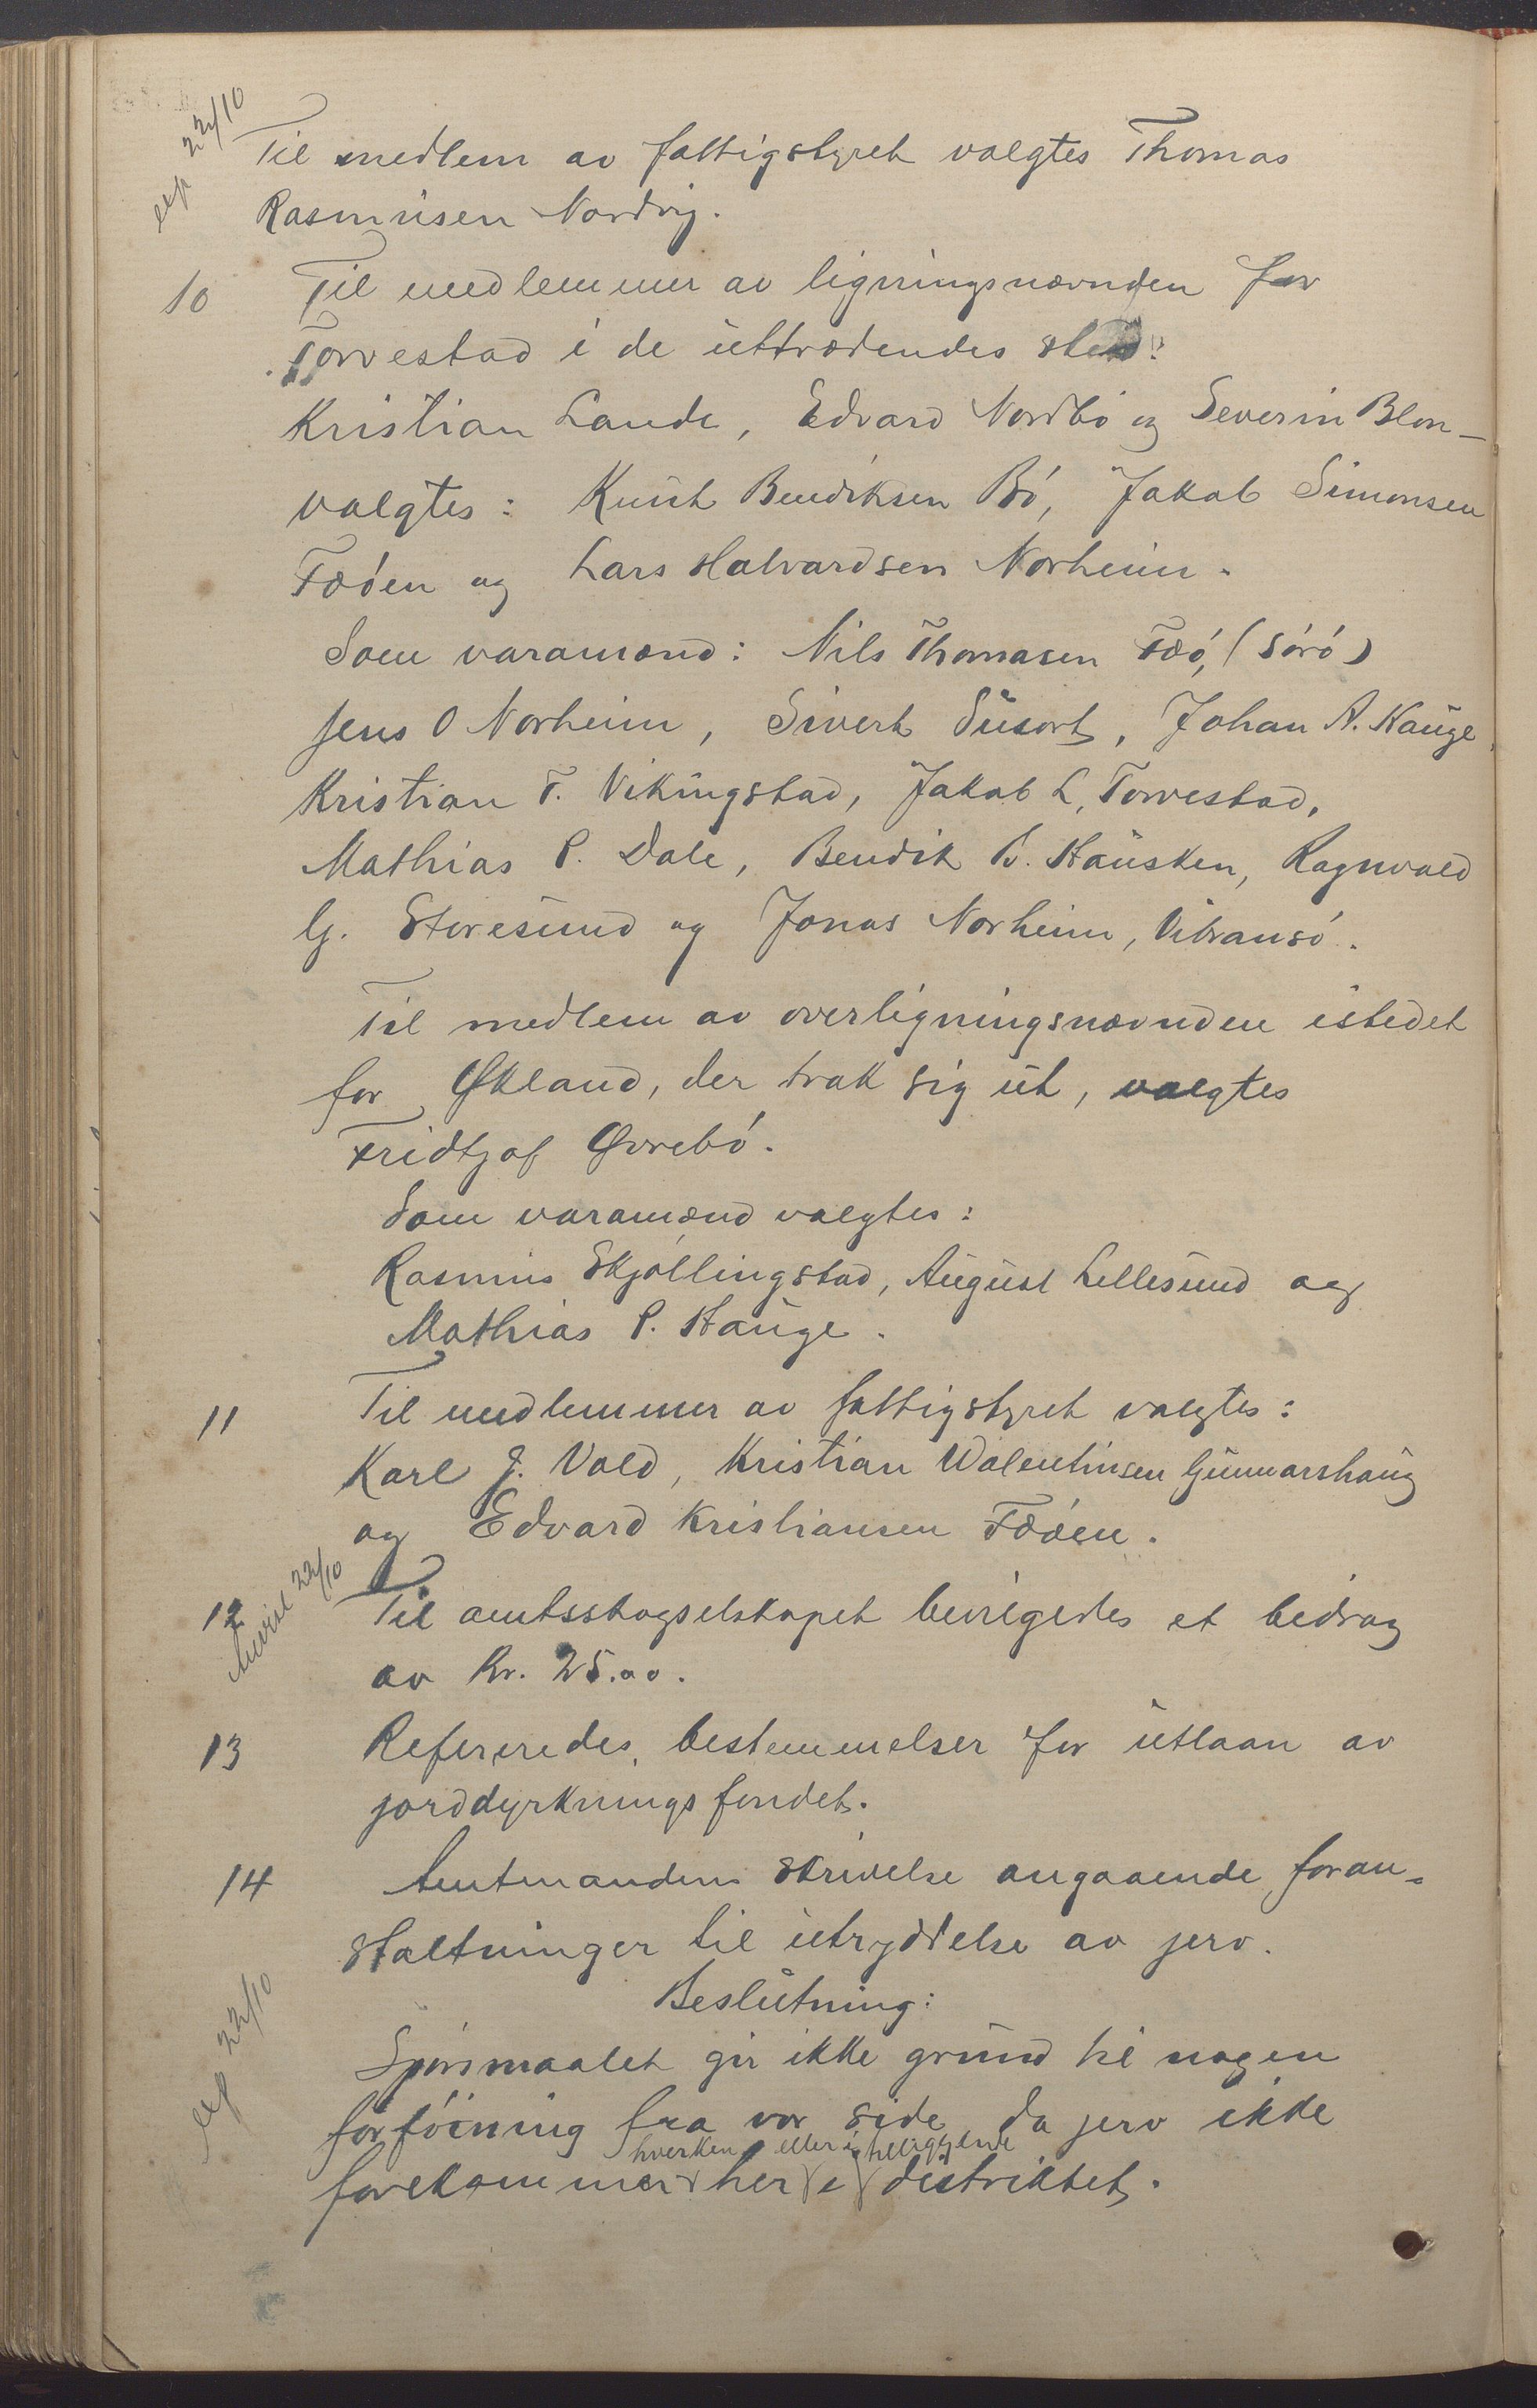 exp 22/10
Til medlem av fattigstyret valgtes Thomas
Rasmusen Nordvig.
10 Til medlemmer av ligningsnævnden for
Torvestad i de uttrædendes sted:
Kristian Lande, Edvard Nordbö og Severin Blon-
valgtes: Knut Bendiksen Bö, Jakob Simonsen
Fæöen og Lars Halvardsen Norheim.
Som varamænd: Nils Thomasen Fæö, (Sörö)
Jens O Norheim, Sivert Susort, Johan A. Hauge,
Kristian T. Vikingstad, Jakob L. Torvestad,
Mathias P. Dale, Bendik B. Hausken, Ragnvald
G. Storesund og Jonas Norheim, Vibransö.
Til medlem av overligningsnævnden istedet
for Økland, der trak sig ut, valgtes
Fridtjof Øvrebö.
Som varamænd valgtes:
Rasmus Skjöllingstad, August Lillesund og
Mathias P. Hauge.
11 Til medlemmer av fattigstyret valgtes:
Karl J. Vold, Kristian Walentinsen Gunnarshaug
og Edvard Kristiansen Fæöen.
Anvist 22/10
12 Til amtsskogselskapet bevilgedes et bidrag
av Kr. 25.00.
13 Refereredes bestemmelser for utlaan av
jorddyrkningsfondet.
14 Amtmandens skrivelse angaaende foran-
staltninger til utryddelse av jerv.
Beslutning:
exp 22/10
Spörsmaalet gir ikke grund til nogen
forföining fra vor side, da jerv ikke
hverken eller i tilliggende
forekommer her i distriktet.